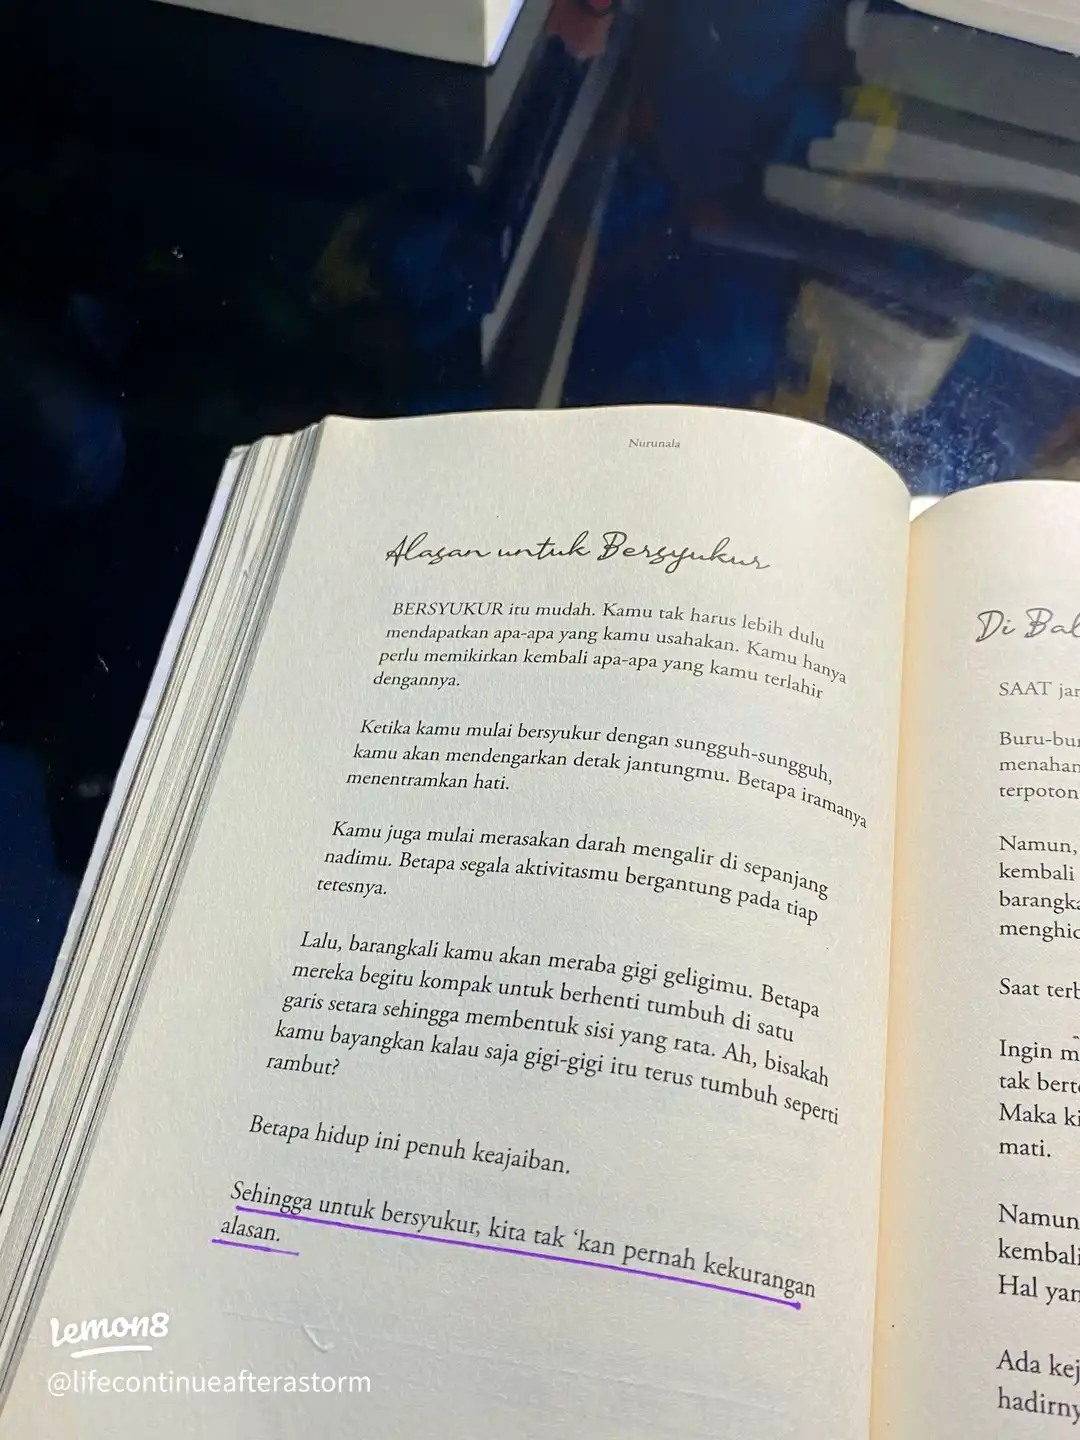 Nurunala
Alasan untuk Bersyukur
BERSYUKUR itu mudah. Kamu tak harus lebih dulu
mendapatkan apa-apa yang kamu usahakan. Kamu hanya
perlu memikirkan kembali apa-apa yang kamu terlahir
dengannya.
Ketika kamu mulai bersyukur dengan sungguh-sungguh,
kamu akan mendengarkan detak jantungmu. Betapa iramanya
menentramkan hati.
Kamu juga mulai merasakan darah mengalir di sepanjang
nadimu. Betapa segala aktivitasmu bergantung pada tiap
tetesnya.
Lalu, barangkali kamu akan meraba gigi geligimu. Betapa
mereka begitu kompak untuk berhenti tumbuh di satu
garis setara sehingga membentuk sisi yang rata. Ah, bisakah
kamu bayangkan kalau saja gigi-gigi itu terus tumbuh seperti
rambut?
Betapa hidup ini penuh keajaiban.
Sehingga untuk bersyukur, kita tak ‘kan pernah kekurangan
alasan.
Di Bal
SAAT jar
Buru-bur
menahan
terpoton
Namun,
kembali
barangka
menghid
Saat terb
Ingin m
tak berte
Maka ki
mati.
Namun
kembali
Hal yan
Ada kej
hadirny
lemon8
@lifecontinueafterastorm